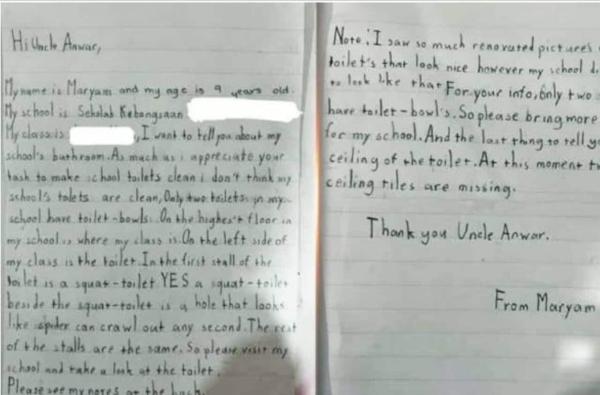 Hi Uncle Anwar,
My name is Maryam and my age is 9 years old.
My school is Sekolah Kebangsaan
My class is , I want to tell you about my
school's bathroom. As much as i appreciate your
task to make school toilets clean i don't think my
school's tolets are clean, Only two toilets in my
school have toilet-bowls. On the highest floor in
my school is where my class is. On the left side of
my class is the toilet. In the first stall of the
toilet is a squat-toilet YES a squat-toilet
beside the squat-toilet is a hole that looks
like spider can crawl out any second. The rest
of the stalls are the same. So please visit my
school and take a look at the toilet.
Please see my notes at the back.
Note: I saw so much renovated pictures
toilet's that look nice however my school
to look like that For your info, only two
have toilet-bowl's. So please bring more
for my school. And the last thing to tell
ceiling of the toilet. At this moment
ceiling tiles are missing.
Thank you Uncle Anwar.
From Maryam